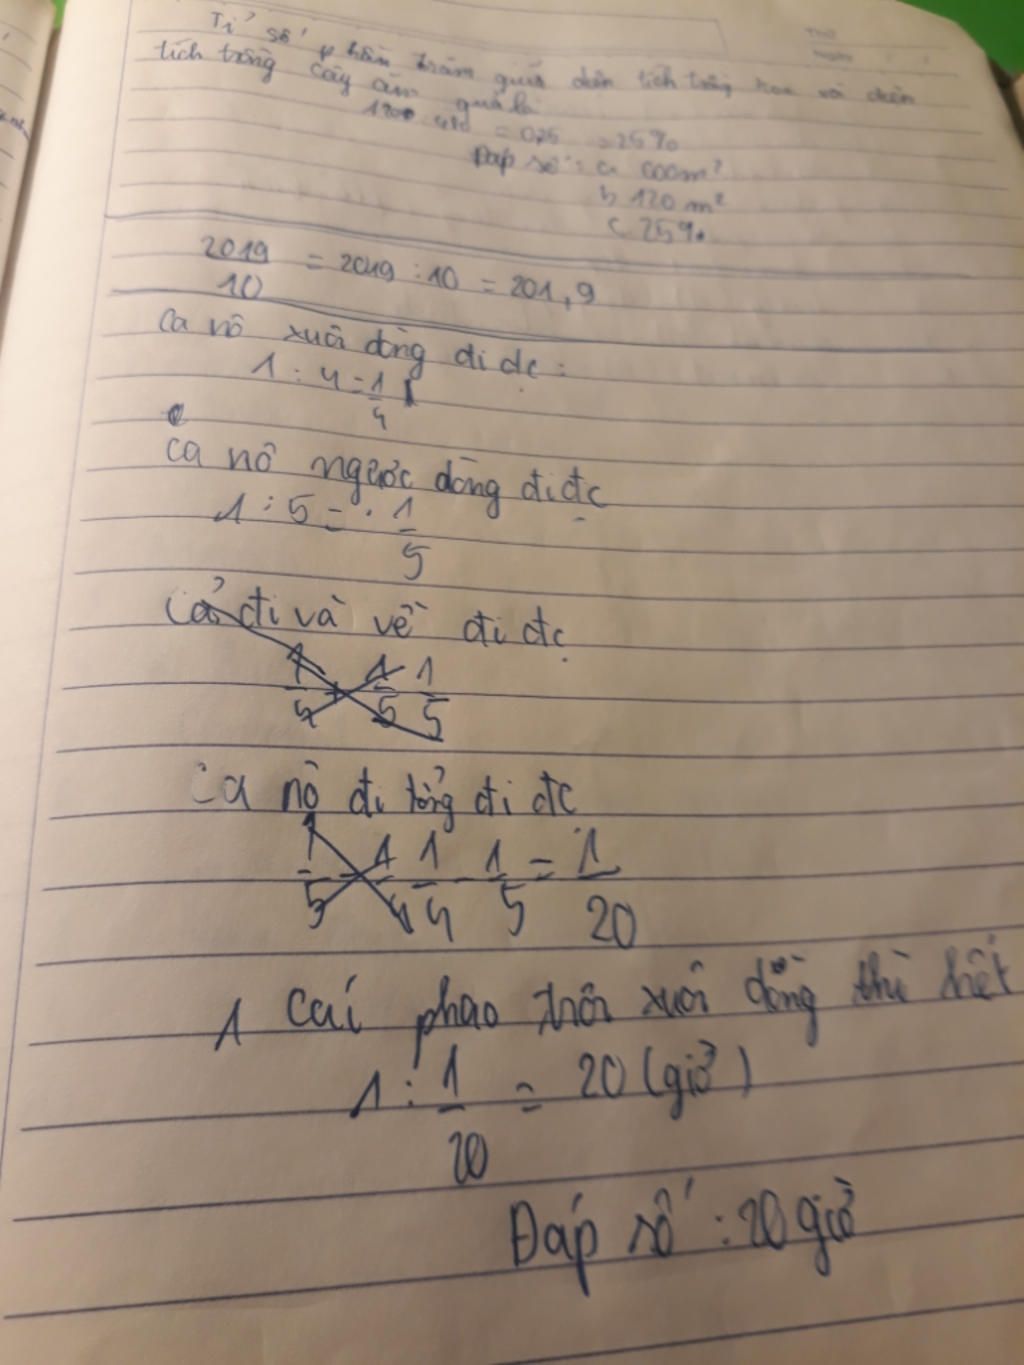 Tỉ số phần trăm giữa diện tích trồng hoa và diện
tích trồng cây ăn quả là
120 : 480 = 0,25 = 25%
Đáp số : a 600m²
b 120 m²
c 25%
2019/10 = 2019 : 10 = 201,9
Ca nô xuôi dòng đi đc :
1 : 4 = 1/4
Ca nô ngược dòng đi đc
1 : 5 = 1/5
Cả đi và về đi đc
1/5
Ca nô đi tổng đi đc
1/4 - 1/5 = 1/20
1 cái phao trôi xuôi dòng thì hết
1 : 1/20 = 20 (giờ)
Đáp số : 20 giờ